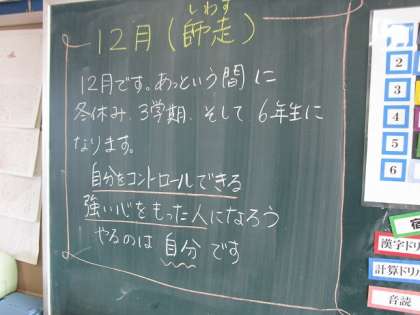 しわす
12月(師走)
12月です。あっという間に
冬休み、3学期、そして 6年生に
なります。
自分をコントロールできる
強い心をもった人になろう
やるのは 自分 です
2
3
4
5
6
漢字ドリ
計算ドリ
音読